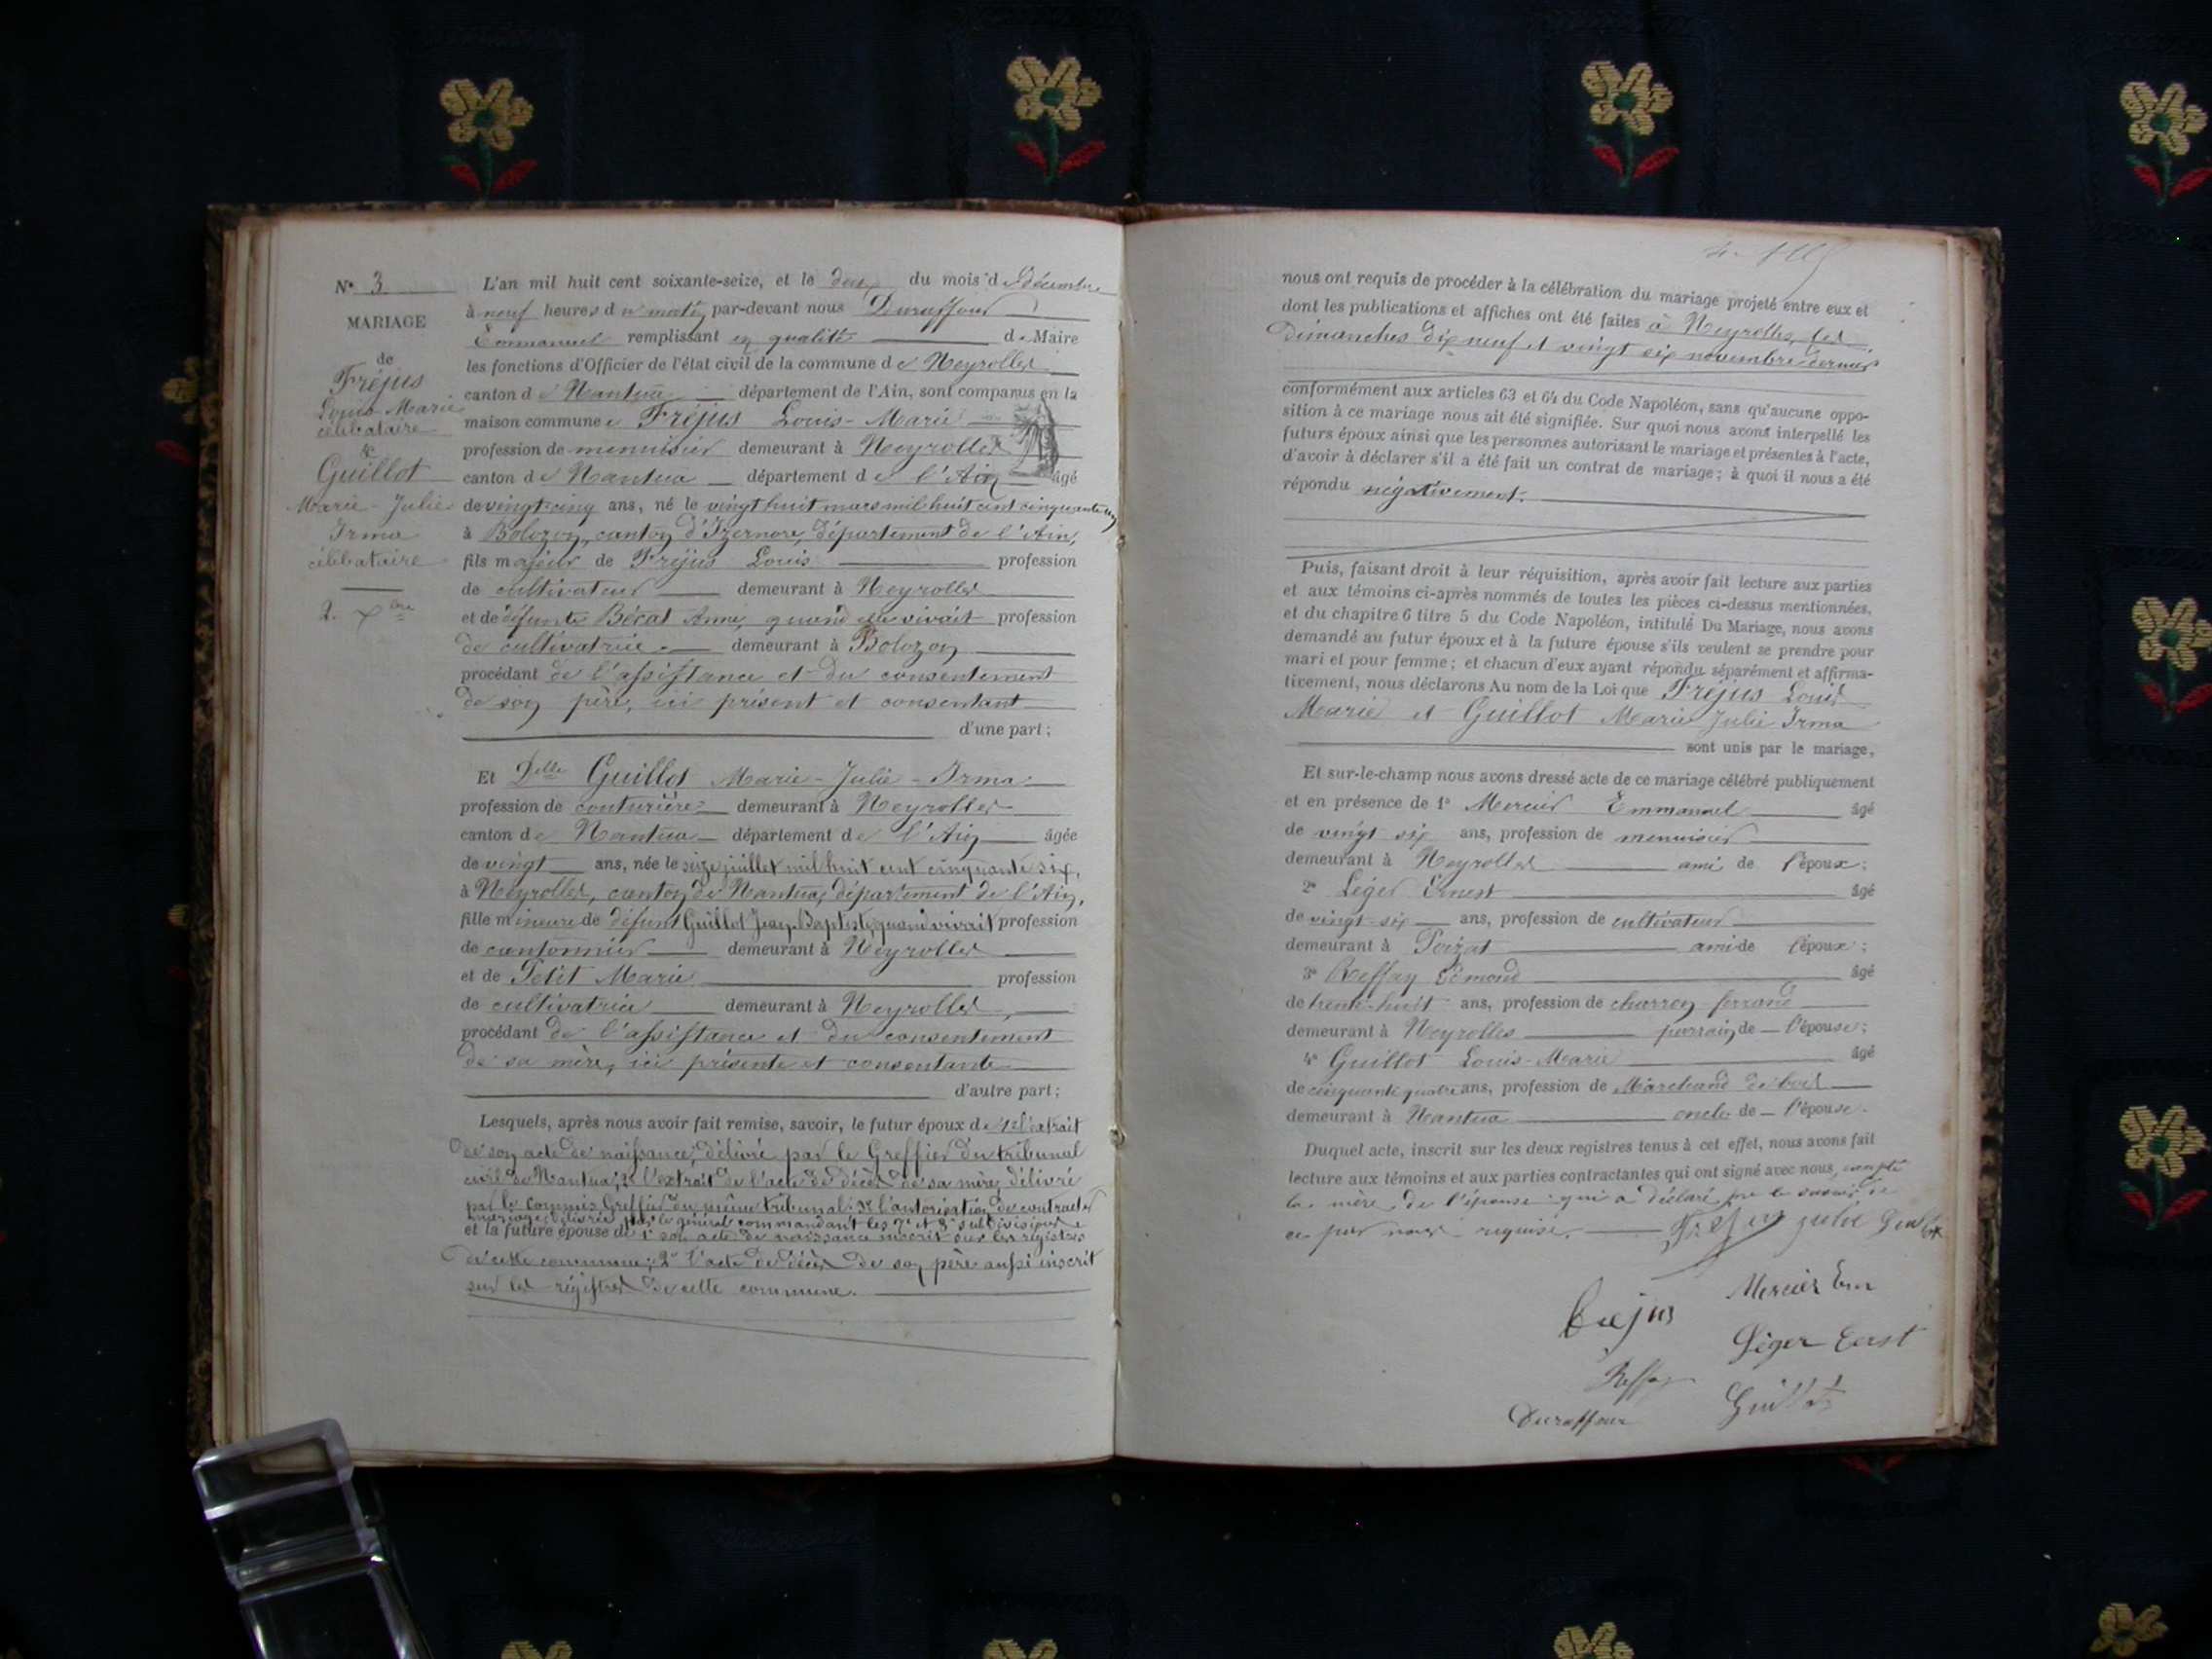 N° 3
MARIAGE
de
Fréjus
Louis-Marie
célibataire
&
Guillot
Marie-Julie
Irma
célibataire
2. Xbre
L'an mil huit cent soixante-seize, et le deux du mois d décembre
à neuf heures du matin, par-devant nous Duraffour
Emmanuel remplissant en qualité de Maire
les fonctions d'Officier de l'état civil de la commune de Neyrolles
canton de Nantua département de l'Ain, sont comparus en la
maison commune Fréjus Louis-Marie
profession de menuisier demeurant à Neyrolles
canton de Nantua département de l'Ain âgé
de vingt-cinq ans, né le vingt huit mars mil huit cent cinquante un
à Bolozon, canton d'Izernore, département de l'Ain,
fils majeur de Fréjus Louis profession
de cultivateur demeurant à Neyrolles
et de défunte Bécat Anne, quand elle vivait profession
de cultivatrice demeurant à Bolozon
procédant de l'assistance et du consentement
de son père, ici présent et consentant
d'une part;
Et Delle Guillot Marie-Julie-Irma
profession de couturière demeurant à Neyrolles
canton de Nantua département de l'Ain âgée
de vingt ans, née le seize juillet mil huit cent cinquante six,
à Neyrolles, canton de Nantua, département de l'Ain,
fille mineure de défunt Guillot Jean-Baptiste, quand vivait profession
de cantonnier demeurant à Neyrolles
et de Petit Marie profession
de cultivatrice demeurant à Neyrolles,
procédant de l'assistance et du consentement
de sa mère, ici présente et consentante
d'autre part;
Lesquels, après nous avoir fait remise, savoir, le futur époux de 1° l'extrait
de son acte de naissance, délivré par le Greffier du tribunal
civil de Nantua; 2° l'extrait de l'acte de décès de sa mère, délivré
par le Commis Greffier du même tribunal; 3° l'autorisation de contracter
mariage, délivrée par le général commandant les 7e et 8e subdivisions
et la future épouse de 1° son acte de naissance inscrit sur les registres
de cette commune; 2° l'acte de décès de son père aussi inscrit
sur les régistres de cette commune.
nous ont requis de procéder à la célébration du mariage projeté entre eux et
dont les publications et affiches ont été faites à Neyrolles, les
dimanches dix neuf et vingt six novembre dernier
conformément aux articles 63 et 64 du Code Napoléon, sans qu'aucune oppo-
sition à ce mariage nous ait été signifiée. Sur quoi nous avons interpellé les
futurs époux ainsi que les personnes autorisant le mariage et présentes à l'acte,
d'avoir à déclarer s'il a été fait un contrat de mariage; à quoi il nous a été
répondu négativement.
Puis, faisant droit à leur réquisition, après avoir fait lecture aux parties
et aux témoins ci-après nommés de toutes les pièces ci-dessus mentionnées,
et du chapitre 6 titre 5 du Code Napoléon, intitulé Du Mariage, nous avons
demandé au futur époux et à la future épouse s'ils veulent se prendre pour
mari et pour femme; et chacun d'eux ayant répondu séparément et affirma-
tivement, nous déclarons Au nom de la Loi que Fréjus Louis
Marie et Guillot Marie Julie Irma
sont unis par le mariage,
Et sur-le-champ nous avons dressé acte de ce mariage célébré publiquement
et en présence de 1° Mercier Emmanuel âgé
de vingt six ans, profession de menuisier
demeurant à Neyrolles ami de l'époux;
2° Léger Ernest âgé
de vingt-six ans, profession de cultivateur
demeurant à Poizat ami de l'époux;
3° Reffay Edmond âgé
de trente-huit ans, profession de charron-ferrand
demeurant à Neyrolles parrain de l'épouse;
4° Guillot Louis-Marie âgé
de cinquante quatre ans, profession de Marchand de bois
demeurant à Nantua oncle de l'épouse.
Duquel acte, inscrit sur les deux registres tenus à cet effet, nous avons fait
lecture aux témoins et aux parties contractantes qui ont signé avec nous, excepté
la mère de l'épouse qui a déclaré ne le savoir, de
ce par nous requise. Frejus julie Guillot
Mercier Em
frejus
Léger Ernst
Reffay
Guillot
Duraffour